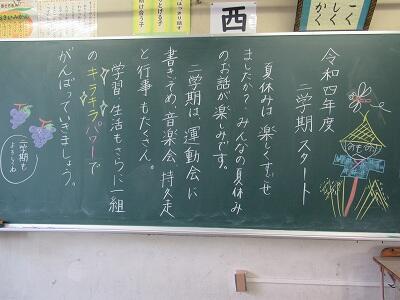 西
令和四年度
二学期 スタート
夏休みは 楽しくすごせ
ましたか？ みんなの夏休み
のお話が 楽しみです。
二学期は、運動会に
書きぞめ、音楽会、持久走
と行事もたくさん。
学習 生活もさらに一組
の キラキラパワーで
がんばっていきましょう。
二学期も
よろしくね